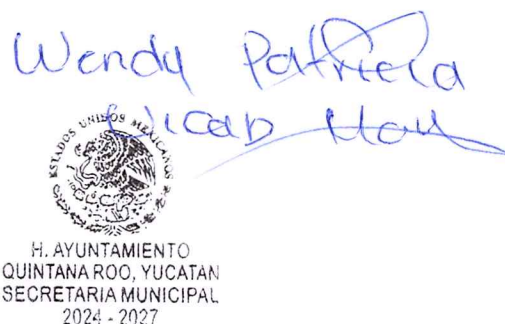 Wendy Patricia
Uicab May
ESTADOS UNIDOS MEXICANOS
H. AYUNTAMIENTO
QUINTANA ROO, YUCATAN
SECRETARIA MUNICIPAL
2024 - 2027